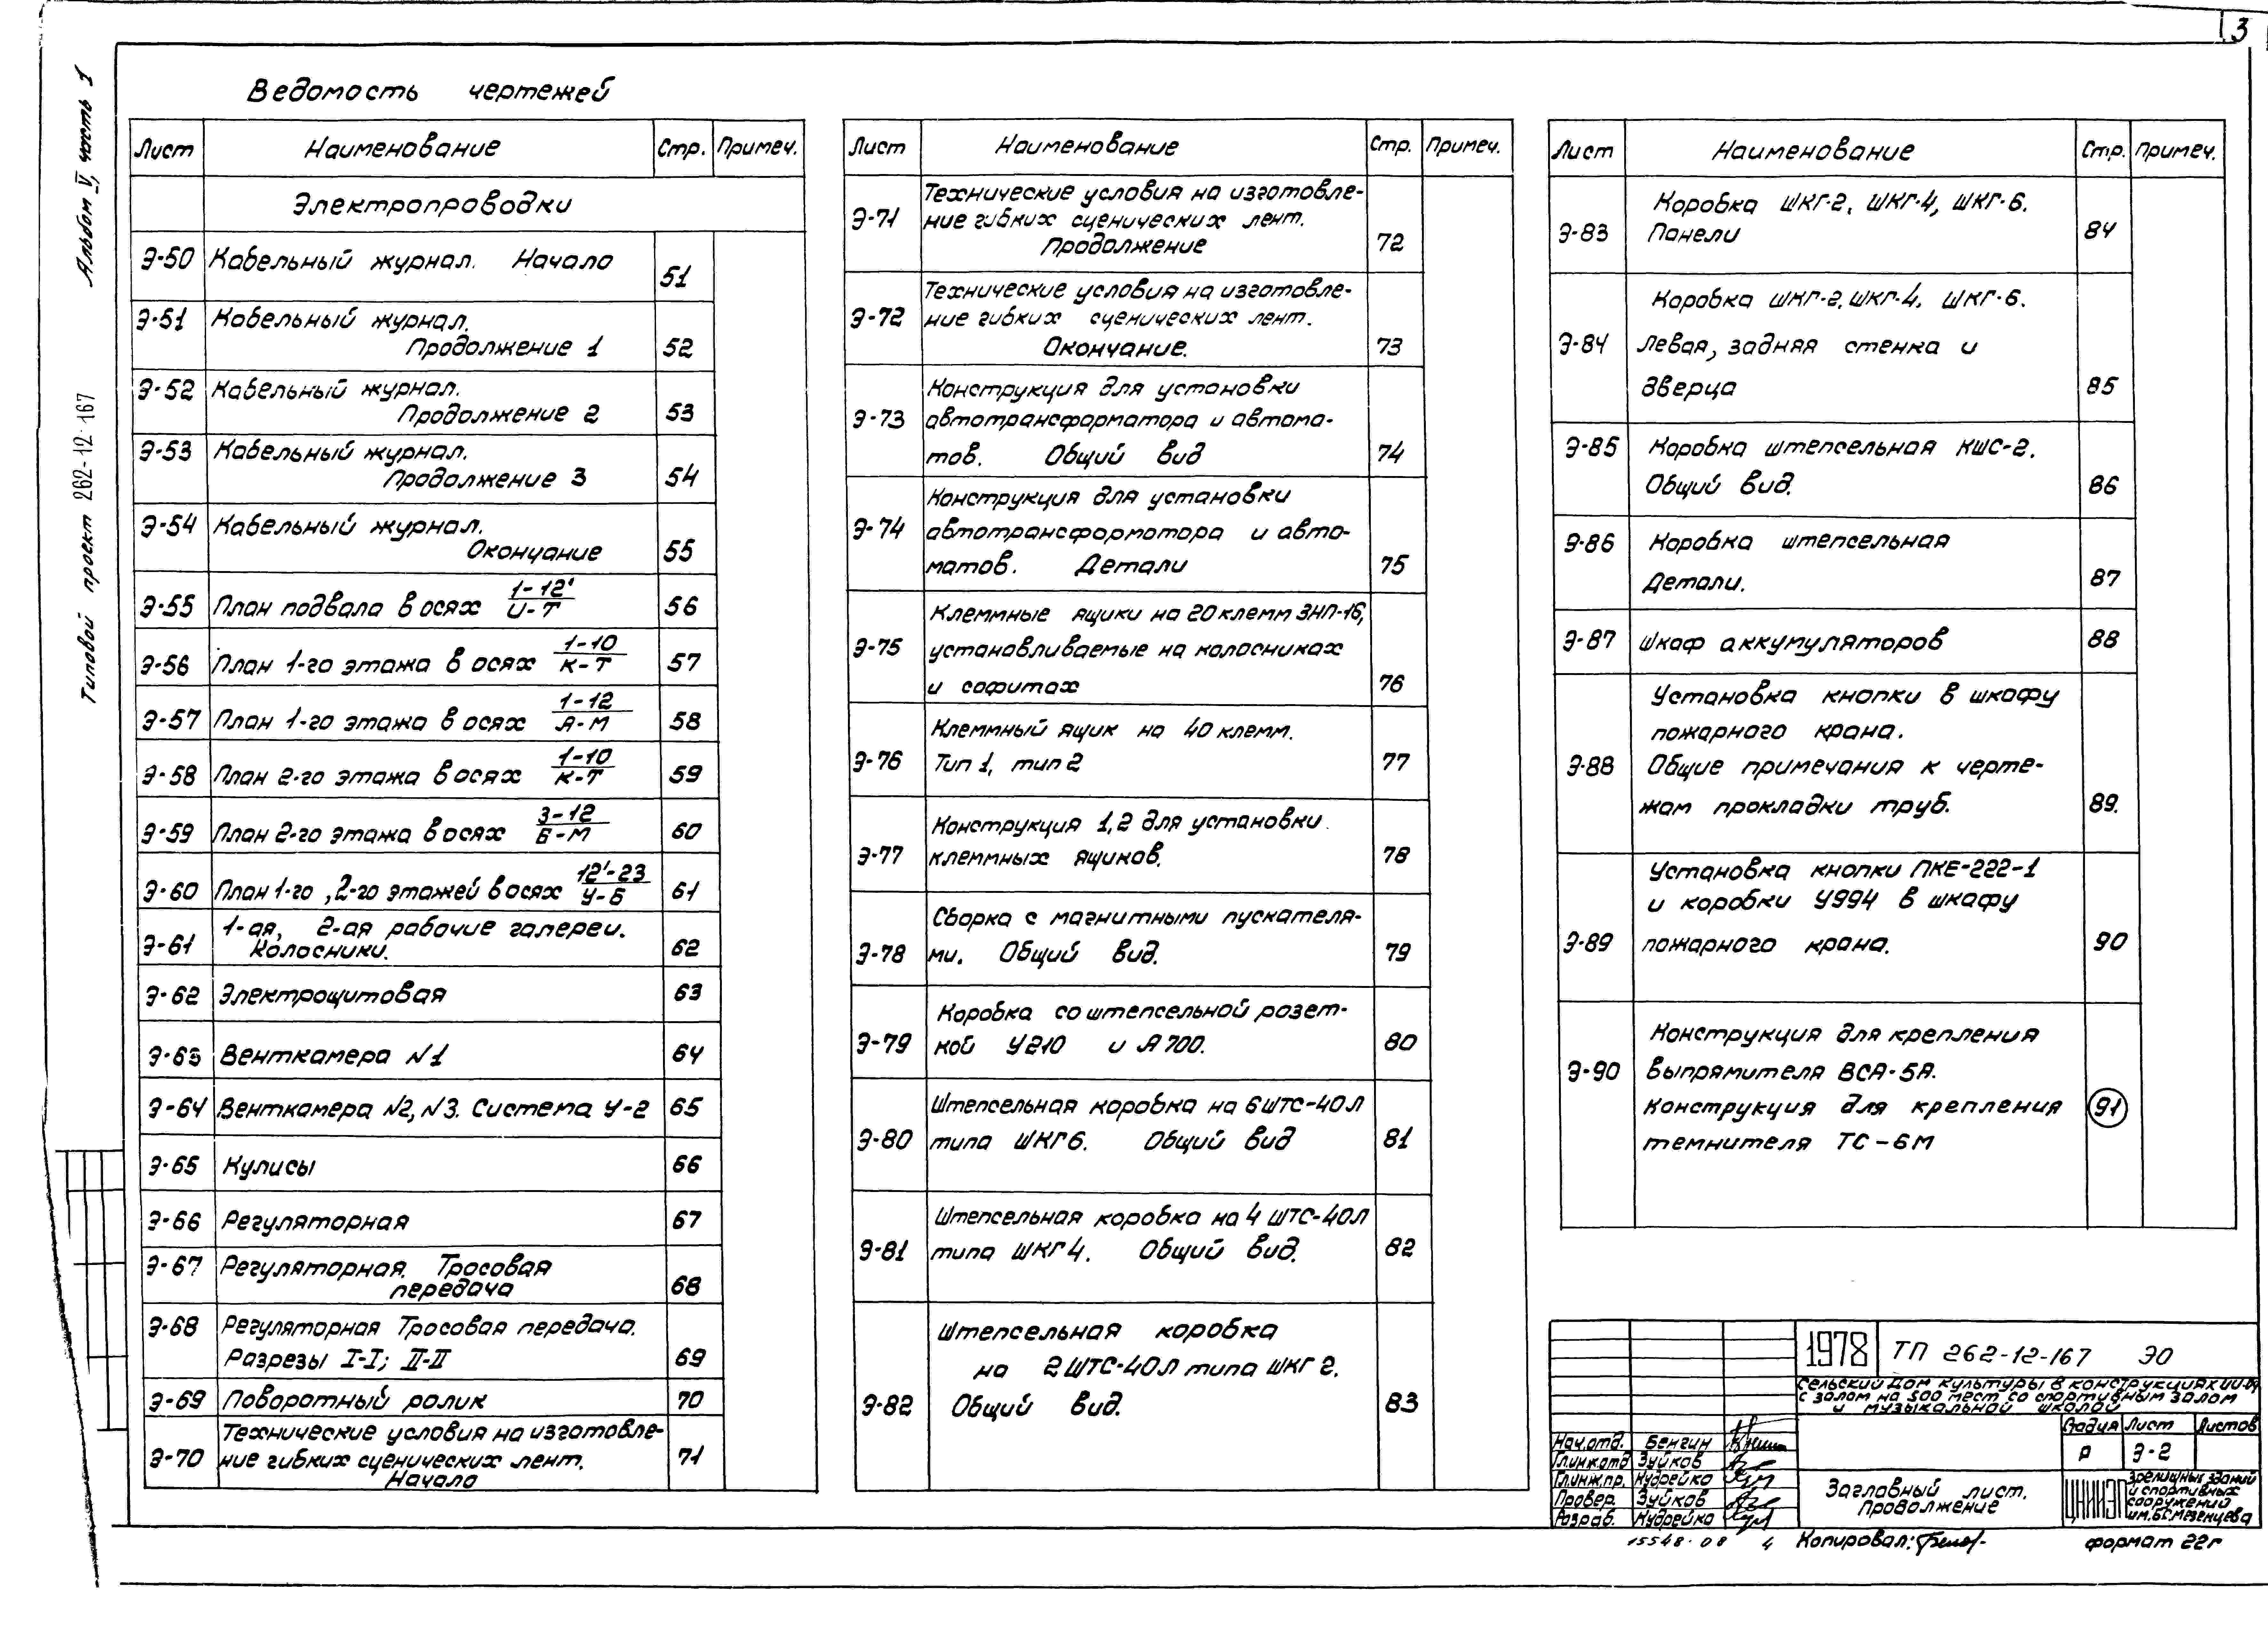 3
Альбом V, часть I
Типовой проект 262-12-167
Ведомость чертежей
Лист Наименование Стр. Примеч.
Электропроводки
Э-50 Кабельный журнал. Начало 51
Э-51 Кабельный журнал.
Продолжение 1 52
Э-52 Кабельный журнал.
Продолжение 2 53
Э-53 Кабельный журнал.
Продолжение 3 54
Э-54 Кабельный журнал.
Окончание 55
Э-55 План подвала в осях 1-12'/И-Т 56
Э-56 План 1-го этажа в осях 1-10/К-Т 57
Э-57 План 1-го этажа в осях 1-12/А-М 58
Э-58 План 2-го этажа в осях 1-10/К-Т 59
Э-59 План 2-го этажа в осях 3-12/Б-М 60
Э-60 План 1-го, 2-го этажей в осях 12'-23/У-Б 61
1-ая, 2-ая рабочие галереи.
Э-61 Колосники. 62
Э-62 Электрощитовая 63
Э-63 Венткамера N1 64
Э-64 Венткамера N2, N3. Система У-2 65
Э-65 Кулисы 66
Э-66 Регуляторная 67
Э-67 Регуляторная. Тросовая
передача 68
Э-68 Регуляторная Тросовая передача.
Разрезы I-I; II-II 69
Э-69 Поворотный ролик 70
Технические условия на изготовле-
Э-70 ние гибких сценических лент. 71
Начало
Лист Наименование Стр. Примеч.
Технические условия на изготовле-
Э-71 ние гибких сценических лент.
Продолжение 72
Технические условия на изготовле-
Э-72 ние гибких сценических лент.
Окончание. 73
Конструкция для установки
Э-73 автотрансформатора и автома-
тов. Общий вид 74
Конструкция для установки
Э-74 автотрансформатора и авто-
матов. Детали 75
Клеммные ящики на 20 клемм ЗНП-16,
Э-75 устанавливаемые на колосниках
и софитах 76
Клеммный ящик на 40 клемм.
Э-76 Тип 1, тип 2 77
Конструкция 1,2 для установки
Э-77 клеммных ящиков. 78
Сборка с магнитными пускателя-
Э-78 ми. Общий вид. 79
Коробка со штепсельной розет-
Э-79 кой У210 и А700. 80
Штепсельная коробка на 6 ШТС-40Л
Э-80 типа ШКГ6. Общий вид 81
Штепсельная коробка на 4 ШТС-40Л
Э-81 типа ШКГ4. Общий вид. 82
Штепсельная коробка
на 2 ШТС-40Л типа ШКГ 2.
Э-82 Общий вид. 83
Лист Наименование Стр. Примеч.
Коробка ШКГ-2, ШКГ-4, ШКГ-6.
Э-83 Панели 84
Коробка ШКГ-2, ШКГ-4, ШКГ-6.
Э-84 Левая, задняя стенка и
дверца 85
Э-85 Коробка штепсельная КШС-2.
Общий вид. 86
Э-86 Коробка штепсельная
Детали. 87
Э-87 Шкаф аккумуляторов 88
Установка кнопки в шкафу
пожарного крана.
Э-88 Общие примечания к черте-
жам прокладки труб. 89.
Установка кнопки ПКЕ-222-1
и коробки У994 в шкафу
Э-89 пожарного крана. 90
Конструкция для крепления
Э-90 выпрямителя ВСА-5А.
Конструкция для крепления 91
темнителя ТС-6М
1978 ТП 262-12-167 ЭО
Сельский дом культуры в конструкциях ИИ-04
с залом на 500 мест со спортивным залом
и музыкальной школой
Стадия Лист Листов
Р Э-2
Нач.отд. Бенгин
Гл.инж.отд Зуйков
Гл.инж.пр. Кудрейко
Провер. Зуйков
Разраб. Кудрейко
Заглавный лист.
Продолжение
ЦНИИЭП зрелищных зданий
и спортивных
сооружений
им. Б.С. Мезенцева
15548-08 4 Копировал: формат 22г